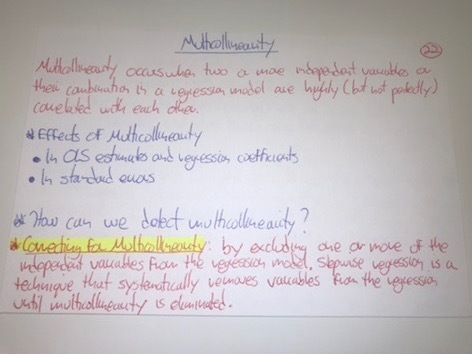 Multicollinearity
22
Multicollinearity occurs when two or more independent variables or
their combination in a regression model are highly (but not perfectly)
correlated with each other.
* Effects of Multicollinearity
• In OLS estimates and regression coefficients
• In standard errors
* How can we detect multicollinearity?
* Correcting for Multicollinearity: by excluding one or more of the
independent variables from the regression model. Stepwise regression is a
technique that systematically removes variables from the regression
until multicollinearity is eliminated.